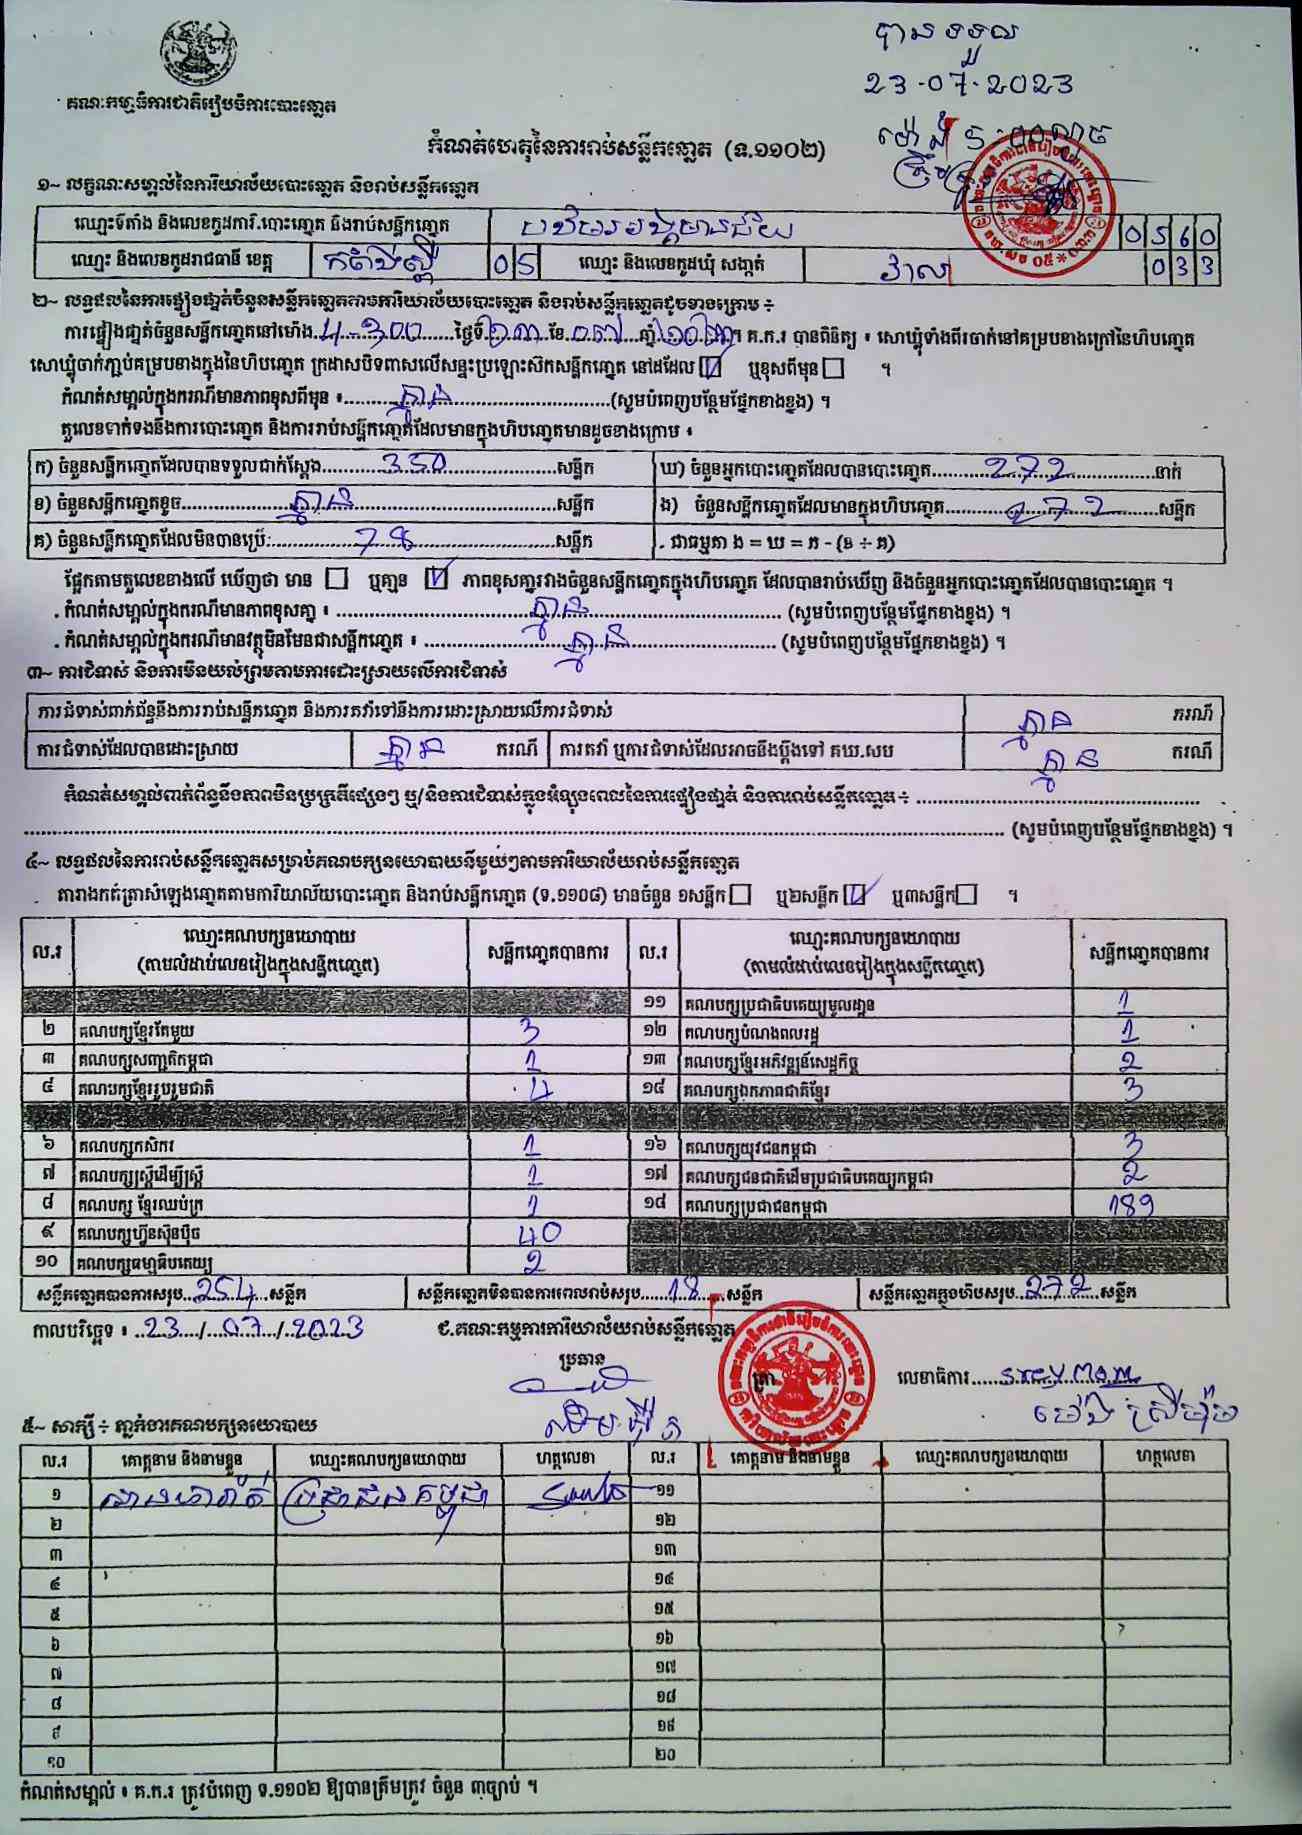 បានទទួល
23-07-2023
ម៉ោង 5:00ល្ងាច
គណៈកម្មាធិការជាតិរៀបចំការបោះឆ្នោត
កំណត់ហេតុនៃការរាប់សន្លឹកឆ្នោត (ទ.១១០២)
១~ លក្ខណៈសម្គាល់នៃការិយាល័យបោះឆ្នោត និងរាប់សន្លឹកឆ្នោត
ឈ្មោះទីតាំង និងលេខកូដការិ.បោះឆ្នោត និងរាប់សន្លឹកឆ្នោត 0560
ឈ្មោះ និងលេខកូដរាជធានី ខេត្ត កំពង់ស្ពឺ 05 ឈ្មោះ និងលេខកូដឃុំ សង្កាត់ វាល 033
២~ លទ្ធផលនៃការផ្ទៀងផ្ទាត់ចំនួនសន្លឹកឆ្នោតតាមការិយាល័យបោះឆ្នោត និងរាប់សន្លឹកឆ្នោតដូចខាងក្រោម ÷
ការផ្ទៀងផ្ទាត់ចំនួនសន្លឹកឆ្នោតនៅម៉ោង ថ្ងៃទី ២៣ ខែ ០៧ ឆ្នាំ ២០២៣។ គ.ក.រ បានពិនិត្យ ៖ សោឃ្លុំទាំងពីរចាក់នៅគម្របខាងក្រៅនៃហិបឆ្នោត
សោឃ្លុំចាក់ភ្ជាប់គម្របខាងក្នុងនៃហិបឆ្នោត ក្រដាសបិទពាសលើសន្ទះប្រឡោះស៊កសន្លឹកឆ្នោត នៅដដែល ☑ ឬខុសពីមុន ☐ ។
កំណត់សម្គាល់ក្នុងករណីមានភាពខុសពីមុន ៖ គ្មាន (សូមបំពេញបន្ថែមផ្នែកខាងខ្នង) ។
តួលេខទាក់ទងនឹងការបោះឆ្នោត និងការរាប់សន្លឹកឆ្នោតដែលមានក្នុងហិបឆ្នោតមានដូចខាងក្រោម ៖
ក) ចំនួនសន្លឹកឆ្នោតដែលបានទទួលជាក់ស្តែង 350 សន្លឹក ឃ) ចំនួនអ្នកបោះឆ្នោតដែលបានបោះឆ្នោត 272 នាក់
ខ) ចំនួនសន្លឹកឆ្នោតខូច គ្មាន សន្លឹក ង) ចំនួនសន្លឹកឆ្នោតដែលមានក្នុងហិបឆ្នោត 272 សន្លឹក
គ) ចំនួនសន្លឹកឆ្នោតដែលមិនបានប្រើ 78 សន្លឹក . ជាធម្មតា ង = ឃ = ក - (ខ + គ)
ផ្អែកតាមតួលេខខាងលើ ឃើញថា មាន ☐ ឬគ្មាន ☑ ភាពខុសគ្នារវាងចំនួនសន្លឹកឆ្នោតក្នុងហិបឆ្នោត ដែលបានរាប់ឃើញ និងចំនួនអ្នកបោះឆ្នោតដែលបានបោះឆ្នោត ។
. កំណត់សម្គាល់ក្នុងករណីមានភាពខុសគ្នា ៖ គ្មាន (សូមបំពេញបន្ថែមផ្នែកខាងខ្នង) ។
. កំណត់សម្គាល់ក្នុងករណីមានវត្ថុមិនមែនជាសន្លឹកឆ្នោត ៖ គ្មាន (សូមបំពេញបន្ថែមផ្នែកខាងខ្នង) ។
៣~ ការជំទាស់ និងការមិនយល់ព្រមតាមការដោះស្រាយលើការជំទាស់
ការជំទាស់ពាក់ព័ន្ធនឹងការរាប់សន្លឹកឆ្នោត និងការតវ៉ាទៅនឹងការដោះស្រាយលើការជំទាស់ គ្មាន ករណី
ការជំទាស់ដែលបានដោះស្រាយ គ្មាន ករណី ការតវ៉ា ឬការជំទាស់ដែលអាចនឹងប្តឹងទៅ គឃ.សប គ្មាន ករណី
កំណត់សម្គាល់ពាក់ព័ន្ធនឹងភាពមិនប្រក្រតីផ្សេងៗ ឬ/និងការជំទាស់ក្នុងអំឡុងពេលនៃការផ្ទៀងផ្ទាត់ និងការរាប់សន្លឹកឆ្នោត ÷
(សូមបំពេញបន្ថែមផ្នែកខាងខ្នង) ។
៤~ លទ្ធផលនៃការរាប់សន្លឹកឆ្នោតសម្រាប់គណបក្សនយោបាយនីមួយៗតាមការិយាល័យរាប់សន្លឹកឆ្នោត
តារាងកត់ត្រាសំឡេងឆ្នោតតាមការិយាល័យបោះឆ្នោត និងរាប់សន្លឹកឆ្នោត (ទ.១១០៨) មានចំនួន ១សន្លឹក ☐ ឬ២សន្លឹក ☑ ឬ៣សន្លឹក ☐ ។
ល.រ ឈ្មោះគណបក្សនយោបាយ (តាមលំដាប់លេខរៀងក្នុងសន្លឹកឆ្នោត) សន្លឹកឆ្នោតបានការ ល.រ ឈ្មោះគណបក្សនយោបាយ (តាមលំដាប់លេខរៀងក្នុងសន្លឹកឆ្នោត) សន្លឹកឆ្នោតបានការ
១១ គណបក្សប្រជាធិបតេយ្យមូលដ្ឋាន 1
២ គណបក្សខ្មែរតែមួយ 3 ១២ គណបក្សបំណងពលរដ្ឋ 1
៣ គណបក្សសញ្ជាតិកម្ពុជា 1 ១៣ គណបក្សខ្មែរអភិវឌ្ឍន៍សេដ្ឋកិច្ច 2
៤ គណបក្សខ្មែររួបរួមជាតិ 4 ១៤ គណបក្សឯកភាពជាតិខ្មែរ 3
៦ គណបក្សកសិករ 1 ១៦ គណបក្សយុវជនកម្ពុជា 3
៧ គណបក្សស្ត្រីដើម្បីស្ត្រី 1 ១៧ គណបក្សជនជាតិដើមប្រជាធិបតេយ្យកម្ពុជា 2
៨ គណបក្ស ខ្មែរឈប់ក្រ 1 ១៨ គណបក្សប្រជាជនកម្ពុជា 189
៩ គណបក្សហ៊្វុនស៊ិនប៉ិច 40
១០ គណបក្សធម្មាធិបតេយ្យ 2
សន្លឹកឆ្នោតបានការសរុប 254 សន្លឹក សន្លឹកឆ្នោតមិនបានការពេលរាប់សរុប 18 សន្លឹក សន្លឹកឆ្នោតក្នុងហិបសរុប 272 សន្លឹក
កាលបរិច្ឆេទ ៖ 23/07/2023 ជ.គណៈកម្មការការិយាល័យរាប់សន្លឹកឆ្នោត
ប្រធាន ត្រា លេខាធិការ sreymom
ម៉េង ស្រីម៉ុម
៥~ សាក្សី ÷ ភ្នាក់ងារគណបក្សនយោបាយ
ល.រ គោត្តនាម និងនាមខ្លួន ឈ្មោះគណបក្សនយោបាយ ហត្ថលេខា ល.រ គោត្តនាម និងនាមខ្លួន ឈ្មោះគណបក្សនយោបាយ ហត្ថលេខា
១ ប្រជាជនកម្ពុជា ១១
២ ១២
៣ ១៣
៤ ១៤
៥ ១៥
៦ ១៦
៧ ១៧
៨ ១៨
៩ ១៩
១០ ២០
កំណត់សម្គាល់ ៖ គ.ក.រ ត្រូវបំពេញ ទ.១១០២ ឱ្យបានត្រឹមត្រូវ ចំនួន ៣ច្បាប់ ។